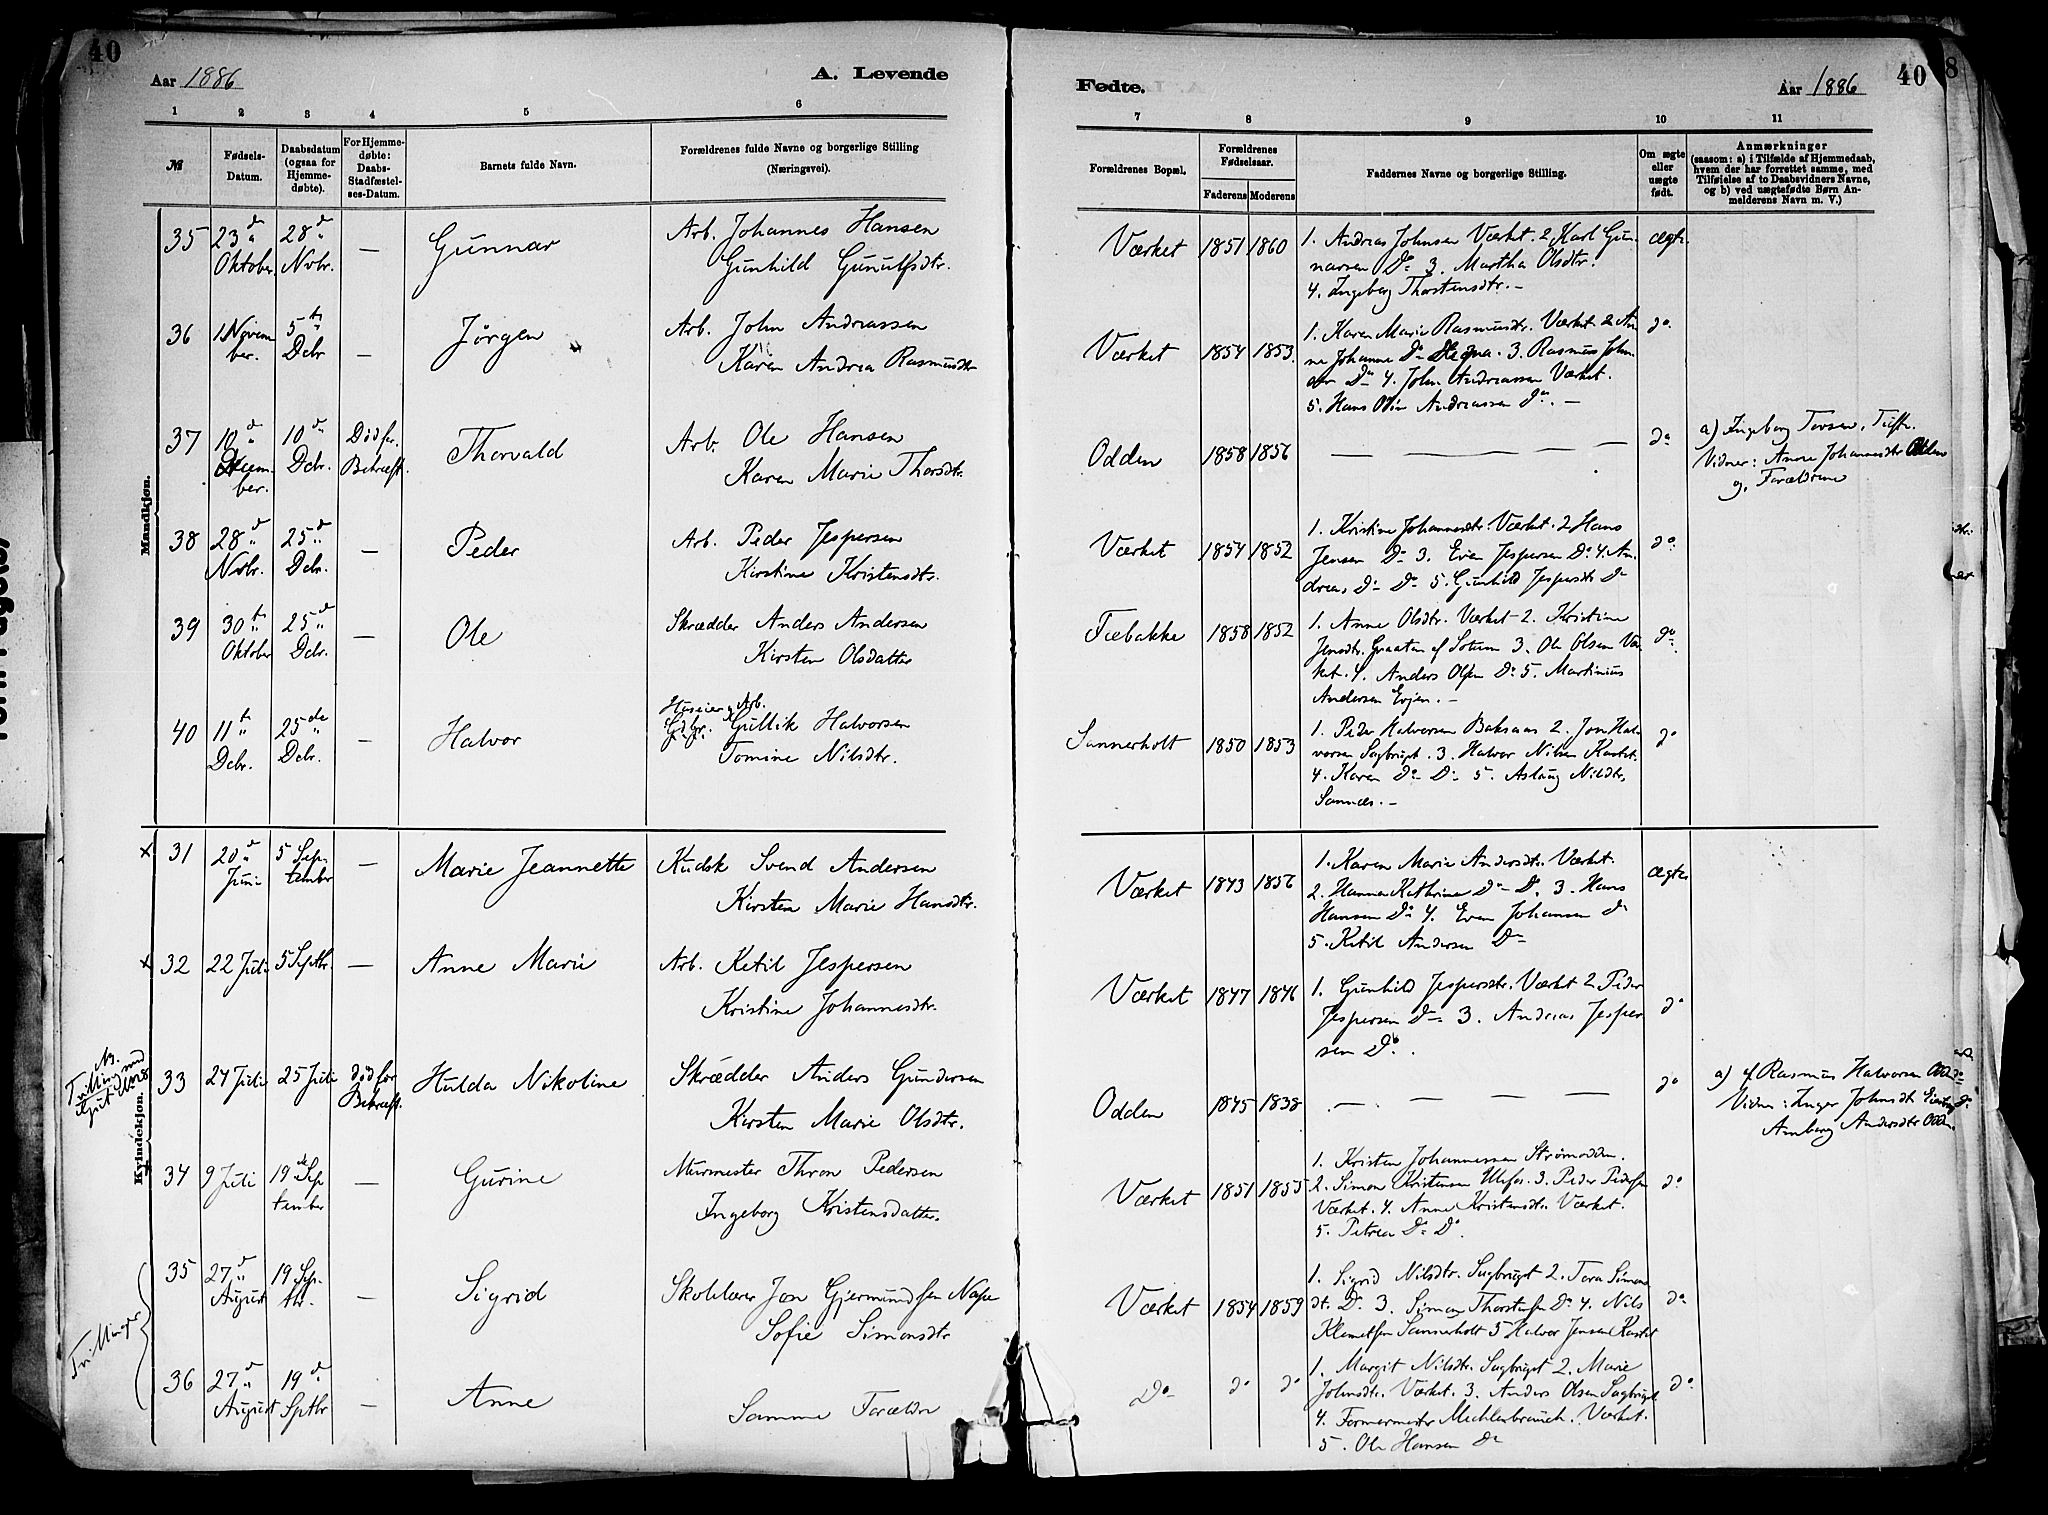 40
Aar 1886
A. Levende
1 2 3 4 5 6
№
Fødsels-Datum.
Daabsdatum (ogsaa for Hjemmedøbte).
For Hjemmedøbte: Daabs-Stadfæstelses-Datum.
Barnets fulde Navn.
Forældrenes fulde Navne og borgerlige Stilling (Næringsvei).
Mandkjøn.
35 23d Oktober 28d Nvbr. — Gunnar Arb. Johannes Hansen
Gunhild Gunulfsdtr.
36 1 November. 5t Dcbr — Jørgen Arb. John Andreassen
Karen Andrea Rasmusdtr
37 10d 10d Dcbr. Død før Bekræft. Thorvald Arb. Ole Hansen
Karen Marie Thorsdtr.
38 28d Nvbr. 25d Dcbr. — Peder Arb. Peder Jespersen
Kirstine Kristensdtr.
39 30t Oktober 25d Dcbr. — Ole Skrædder Anders Andersen
Kirsten Olsdatter
40 11t Dcbr. 25de Dcbr. — Halvor Huseier, Arb.
Gullik Halvorsen
Tomine Nilsdtr.
Kvindekjøn.
x 31 20d Juni 5 September — Marie Jeannette Kudsk Svend Andersen
Kirsten Marie Hansdtr.
x 32 22 Juli 5 Septbr. — Anne Marie Arb. Ketil Jespersen
Kristine Johannesdtr.
33 24 Juli 25 Juli død før Bekræft. Hulda Nikoline Skrædder Anders Gundersen
Kirsten Marie Olsdtr.
34 9 Juli 19de September — Gurine Murmester Thron Pedersen
Ingeborg Kristensdatter.
Tvillinger
35 27d August 19 Septbr. — Sigrid Skolelærer Jon Gjermundsen Nape
Sofie Simonsdtr
36 27d August 19d Sptbr — Anne Samme Forældre
Fødte.
Aar 1886
40
8
7 8 9 10 11
Forældrenes Bopæl.
Forældrenes Fødselsaar.
Faderens Moderens
Faddernes Navne og borgerlige Stilling.
Om ægte eller uægte født.
Anmærkninger
(saasom: a) i Tilfælde af Hjemmedaab, hvem der har forrettet samme, med Tilføielse af to Daabsvidners Navne, og b) ved uægtefødte Børn Anmelderens Navn m. V.)
Værket 1851 1860 1. Andreas Johnsen Værket. 2 Karl Gun- ægte.
narsen Do 3. Martha Olsdtr.
4. Ingeborg Thorstensdtr. —
Værket 1854 1853. 1. Karen Marie Rasmusdtr. Værket. 2 An- do.
ne Johanne Do Hegna. 3. Rasmus John
Do 4. John Andreassen Værket.
5. Hans Olin Andreassen do. —
Odden 1858 1856 — — — do a) Ingeborg Torsen,
Vidner: Anne Johannesdtr Odden
og Forældrene
Værket 1854 1852 1. Kristine Johannesdtr. Værket. 2 Hans do.
Jensen Do 3. Even Jespersen Do 4. An-
dreas Do Do 5. Gunhild Jespersdtr Do
Fæbakke 1858 1852 1. Anne Olsdtr. Værket 2. Kristine do.
Jensdtr. Graaten af Solum 3. Ole Olsen Vær-
ket. 4. Anders Olsen Do 5. Martinius
Andersen Evjen. —
Sannerholt 1850 1853 1. Peder Halvorsen Baksaas 2. Jon Hal- do
vorsen Sagbruget. 3. Halvor Nilsen Kastet.
4. Karen Do Do 5. Aslaug Nilsdtr.
Sannæs. —
Værket 1843 1856 1. Karen Marie Andersdtr. Værket. ægte.
2. Hanna Kathrine Do Do. 3. Hans
Hansen Do 4. Even Johansen Do
5. Ketil Andersen Do
Værket 1847 1846 1. Gunhild Jespersdtr. Værket 2 Peder do
Jespersen Do 3. Andreas Jesper
sen Do.
Odden 1845 1838 — — — do a) af Rasmus Halvorsen
Vidner: Inger Johnsdtr
Amborg Andersdtr Odden.
Værket 1851 1855 1. Kristen Johannessen Strømodden. do
2. Simon Kristensen Ulefos. 3. Peder Pedersen
Værket. 4. Anne Kristensdtr. Værket.
5. Petrea Do Do.
Værket 1854 1859 1. Sigrid Nilsdtr. Sagbruget 2. Tora Simons do
dt. Do 3. Simon Thorstensen Do 4. Nils
Klemetsen Sannerholt 5 Halvor Jensen Kastet
Do do do 1. Margit Nilsdtr. Sagbruget 2. Marie do.
Johnsdtr. Værket. 3. Anders Olsen Sagbruget
4. Formermester Mechlenbrauch. Værket.
5. Ole Hansen Do